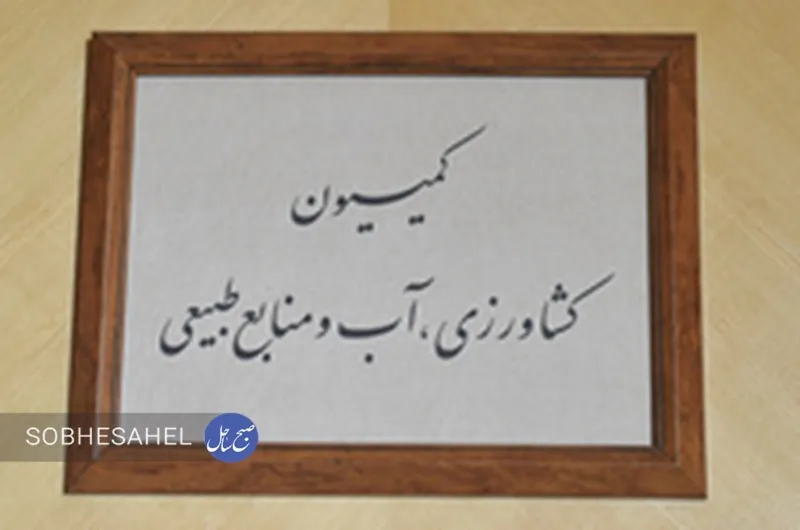 کمیسیون
کشاورزی، آب و منابع طبیعی
SOBHESAHEL صبح ساحل